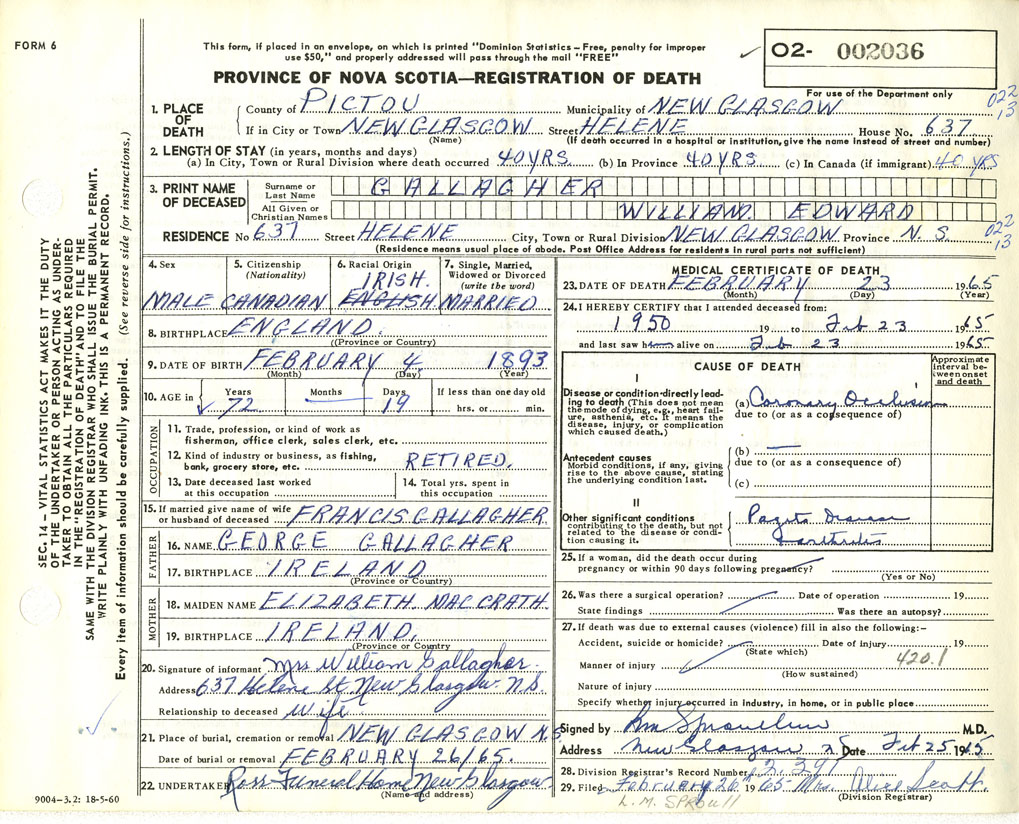 FORM 6
This form, if placed in an envelope, on which is printed "Dominion Statistics – Free, penalty for improper
use $50," and properly addressed will pass through the mail "FREE"
PROVINCE OF NOVA SCOTIA—REGISTRATION OF DEATH
O2- 002036
For use of the Department only
022
13
1. PLACE OF DEATH
County of PICTOU Municipality of NEW GLASGOW
If in City or Town NEW GLASGOW Street HELENE House No. 637
(Name) (If death occurred in a hospital or institution, give the name instead of street and number)
2. LENGTH OF STAY (in years, months and days)
(a) In City, Town or Rural Division where death occurred 40 YRS (b) In Province 40 YRS (c) In Canada (if immigrant) 40 YRS
3. PRINT NAME OF DECEASED
Surname or Last Name GALLAGHER
All Given or Christian Names WILLIAM EDWARD
RESIDENCE No 637 Street HELENE City, Town or Rural Division NEW GLASGOW Province N. S.
(Residence means usual place of abode. Post Office Address for residents in rural parts not sufficient)
022
13
4. Sex MALE
5. Citizenship (Nationality) CANADIAN
6. Racial Origin IRISH. ENGLISH
7. Single, Married, Widowed or Divorced (write the word) MARRIED
8. BIRTHPLACE ENGLAND.
(Province or Country)
9. DATE OF BIRTH FEBRUARY 4, 1893
(Month) (Day) (Year)
10. AGE in Years 72 Months — Days 19 If less than one day old hrs. or min.
OCCUPATION
11. Trade, profession, or kind of work as fisherman, office clerk, sales clerk, etc.
12. Kind of industry or business, as fishing, bank, grocery store, etc. RETIRED.
13. Date deceased last worked at this occupation
14. Total yrs. spent in this occupation
15. If married give name of wife or husband of deceased FRANCIS GALLAGHER
FATHER
16. NAME GEORGE GALLAGHER
17. BIRTHPLACE IRELAND
(Province or Country)
MOTHER
18. MAIDEN NAME ELIZABETH MAC CRATH
19. BIRTHPLACE IRELAND.
(Province or Country)
20. Signature of informant Mrs William Gallagher.
Address 637 Helene St New Glasgow N.S.
Relationship to deceased Wife
21. Place of burial, cremation or removal NEW GLASGOW N.S
Date of burial or removal FEBRUARY 26/65.
22. UNDERTAKER Ross Funeral Home New Glasgow
(Name and address)
MEDICAL CERTIFICATE OF DEATH
23. DATE OF DEATH FEBRUARY 23 1965
(Month) (Day) (Year)
24. I HEREBY CERTIFY that I attended deceased from:
1950 19 to Feb 23 1965
and last saw him alive on Feb 23 1965
CAUSE OF DEATH
Approximate interval between onset and death
I
Disease or condition directly leading to death (This does not mean the mode of dying, e.g., heart failure, asthenia, etc. It means the disease, injury, or complication which caused death.)
(a) Coronary Occlusion
due to (or as a consequence of)
Antecedent causes
Morbid conditions, if any, giving rise to the above cause, stating the underlying condition last.
(b) —
due to (or as a consequence of)
(c)
II
Other significant conditions contributing to the death, but not related to the disease or condition causing it.
Pagets Disease
25. If a woman, did the death occur during
pregnancy or within 90 days following pregnancy?
(Yes or No)
26. Was there a surgical operation? Date of operation 19
State findings Was there an autopsy?
27. If death was due to external causes (violence) fill in also the following:–
Accident, suicide or homicide? Date of injury 19
(State which)
420.1
Manner of injury
(How sustained)
Nature of injury
Specify whether injury occurred in industry, in home, or in public place
Signed by M.D.
Address New Glasgow NS Date Feb 25 1965
28. Division Registrar's Record Number 2,391
29. Filed February 26 1965 Mrs. Alice Scott.
(Division Registrar)
L. M. SPROULL
SEC. 14 – VITAL STATISTICS ACT MAKES IT THE DUTY
OF THE UNDERTAKER OR PERSON ACTING AS UNDER-
TAKER TO OBTAIN ALL THE PARTICULARS REQUIRED
IN THE "REGISTRATION OF DEATH" AND TO FILE THE
SAME WITH THE DIVISION REGISTRAR WHO SHALL ISSUE THE BURIAL PERMIT.
WRITE PLAINLY WITH UNFADING INK. THIS IS A PERMANENT RECORD.
Every item of information should be carefully supplied. (See reverse side for instructions.)
9004-3.2: 18-5-60